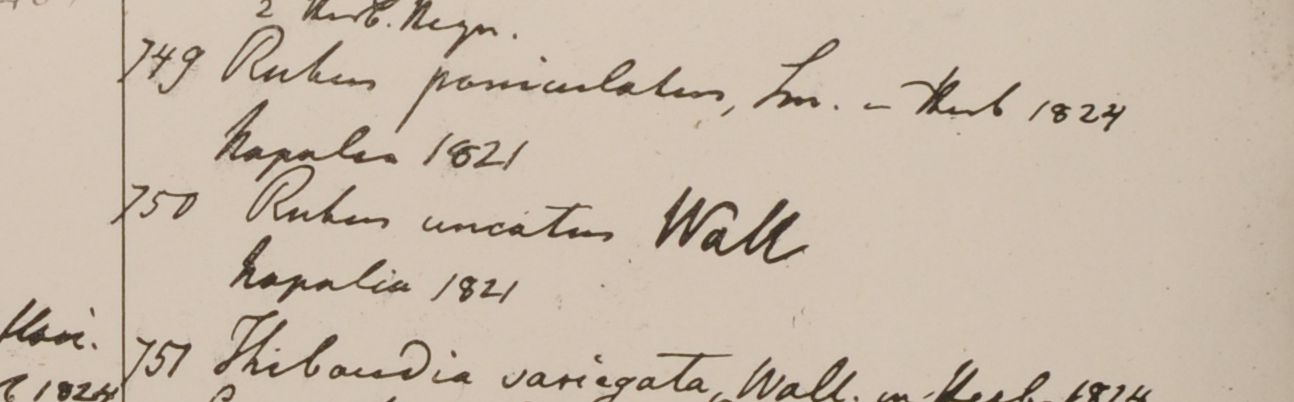 2 Herb. Napr.
749 Rubus paniculatus, Sm. - Herb 1824
Napalia 1821
750 Rubus uncatus Wall
Napalia 1821
751 Thibaudia variegata, Wall. in Herb. 1824
1824